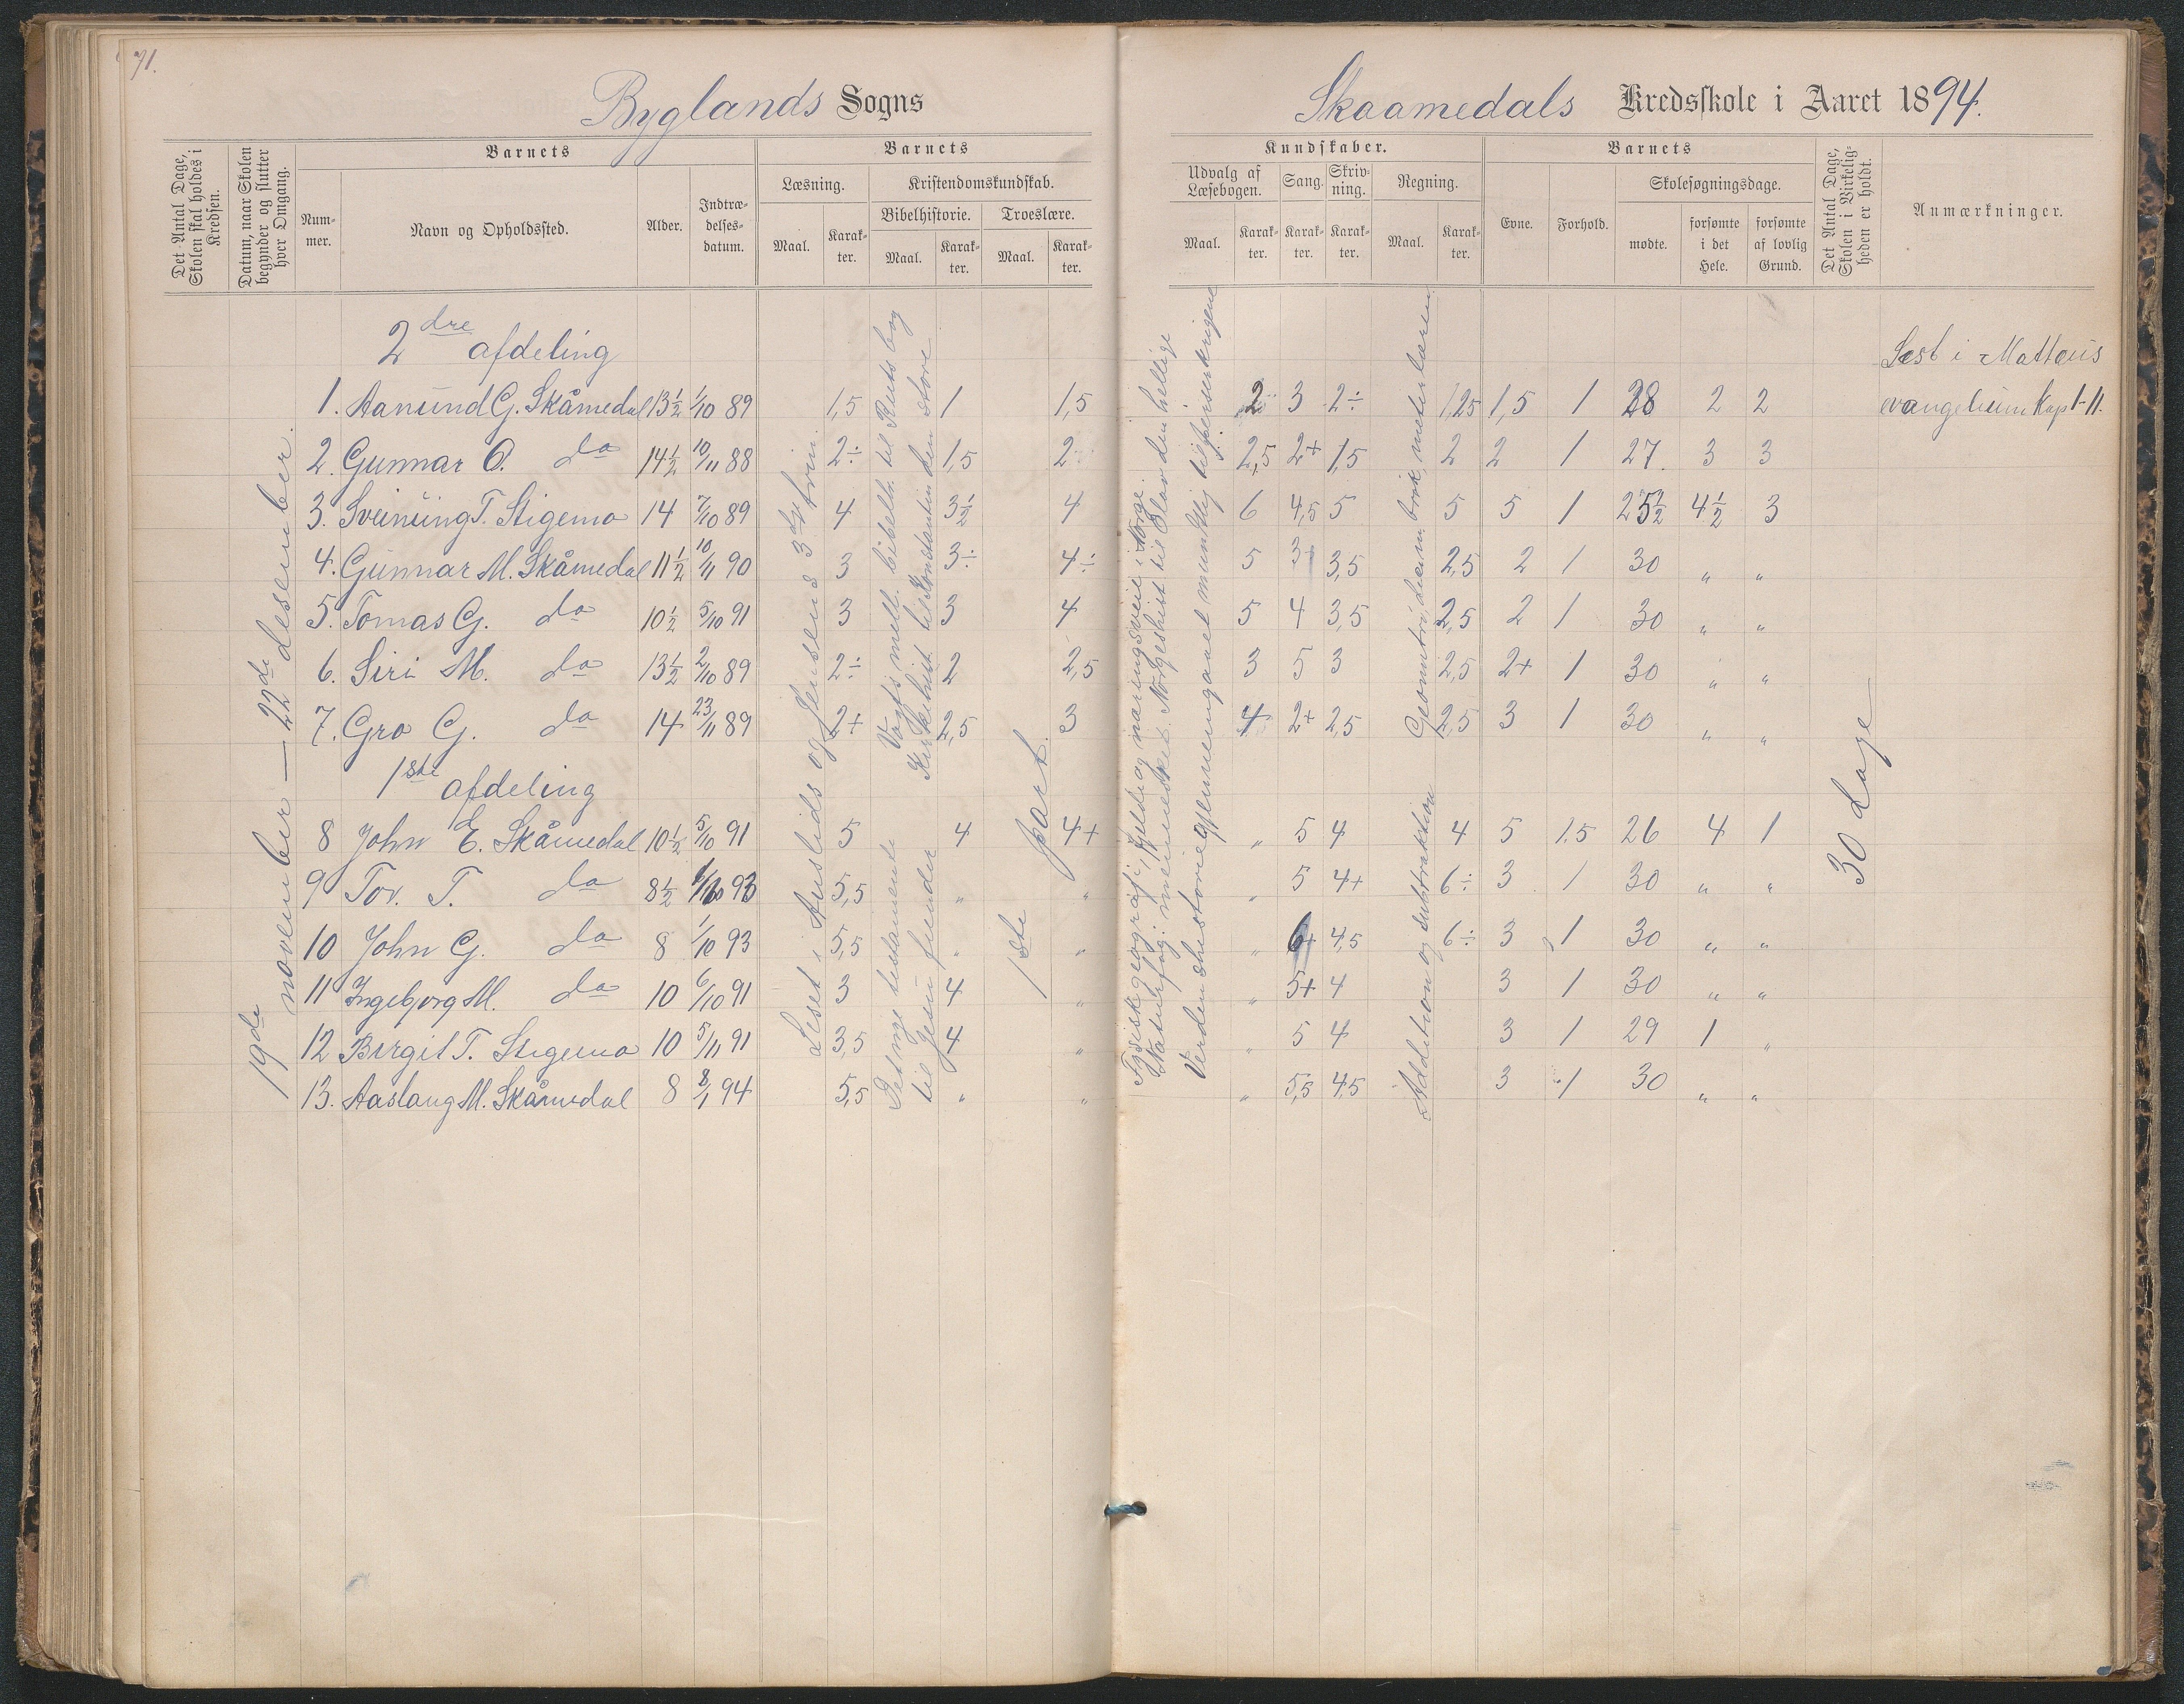 71.
Byglands Sogns
Skaamedals Kredsskole i Aaret 1894.
Det Antal Dage, Skolen skal holdes i Kredsen.
Datum, naar Skolen begynder og slutter hver Omgang.
Barnets
Barnets
Kundskaber.
Barnets
Det Antal Dage, Skolen i Virkeligheden er holdt.
Anmærkninger.
Nummer.
Navn og Opholdssted.
Alder.
Indtrædelsesdatum.
Læsning.
Kristendomskundskab.
Bibelhistorie.
Troeslære.
Maal. Karakter. Maal. Karakter. Maal. Karakter.
Udvalg af Læsebogen. Sang. Skrivning. Regning.
Maal. Karakter. Karakter. Karakter. Maal. Karakter.
Evne. Forhold.
Skolesøgningsdage.
mødte. forsømte i det Hele. forsømte af lovlig Grund.
19de november — 22de desember.
2dre afdeling
Læst i Matteus
1. Aanund G. Skåmedal 13½ 1/10 89 1,5 1 1,5 2 3 2÷ 1,25 1,5 1 28 2 2 evangelium Kap 1-11.
2. Gunnar O. do 14½ 10/11 88 2÷ 1,5 2 2,5 2+ 1,5 2 2 1 27. 3 3
3. Sveinung T. Stigemo 14 7/10 89 4 3½ 4 6 4,5 5 5 5 1 25½ 4½ 3
4. Gunnar M. Skåmedal 11½ 10/11 90 3 3÷ 4÷ 5 3 3,5 2,5 2 1 30 " "
5. Tomas G. do 10½ 5/10 91 3 3 4 5 4 3,5 2,5 2 1 30 " "
6. Siri M. do 13½ 2/10 89 2÷ 2 2,5 3 5 3 2,5 2+ 1 30 " "
7. Gro G. do 14 23/11 89 2+ 2,5 3 4 2+ 2,5 2,5 3 1 30 " "
1ste afdeling
8 John E. Skåmedal 10½ 5/10 91 5 4 4+ " 5 4 4 5 1.5 26 4 1
9 Tov. T. do 8½ 93 5,5 " " " 5 4+ 6÷ 3 1 30 " "
10 John G. do 8 1/10 93 5,5 " " " 6+ 4,5 6÷ 3 1 30 " "
11 Ingeborg M. do 10 6/10 91 3 4 " " 5+ 4 3 1 30 " "
12 Birgit T. Stigemo 10 5/11 91 3,5 4 " " 5 4 3 1 29 1 "
13. Aaslaug M. Skåmedal 8 8/1 94 5,5 " " " 5,5 4,5 3 1 30 " "
Leset i Auslids og Jensens 3dje trin.
Vogts mell. bibelh. til Ruts bog
Kirkehist. til Konstantin den store
Det nye testamente
til Jesu fiender
1ste part.
Fysisk geografi, fjelde og næringsveie i Norge.
Naturfag: mennesket. Norgeshist. til Olav den hellige
Verdenshistorie gjennemgaaet mundtlig til perserkrigene
Geometri, desim. brøk, meterlæren
Addition og subtraktion
30 dage